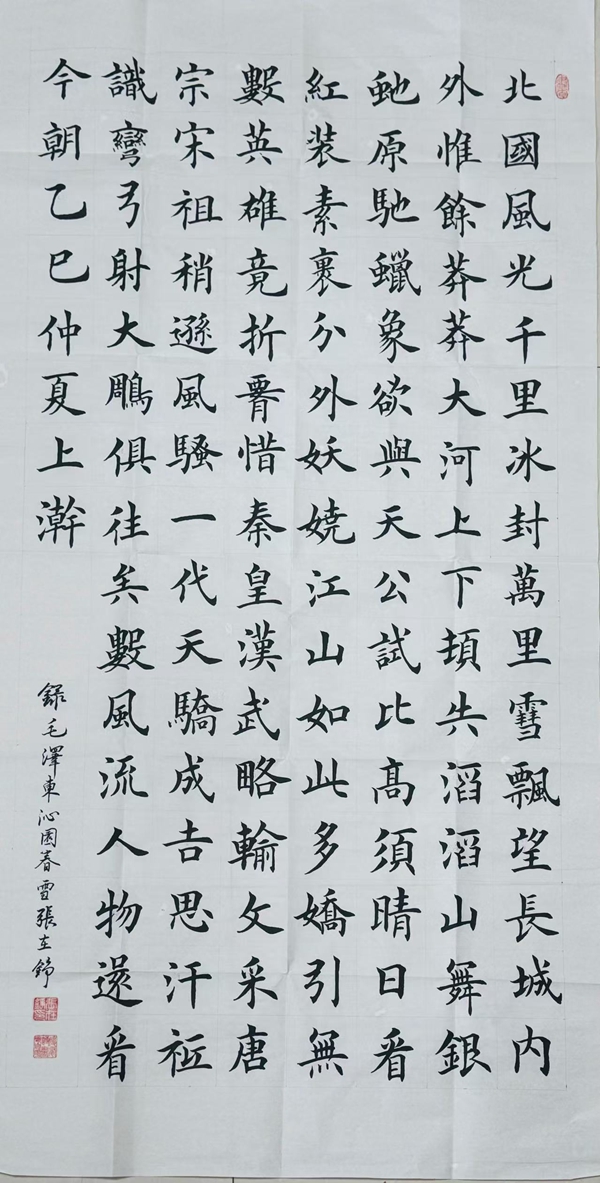 北國風光千里冰封萬里雪飄望長城内
外惟餘莽莽大河上下頓失滔滔山舞銀
虵原馳蠟象欲與天公試比高須晴日看
紅裝素裹分外妖嬈江山如此多嬌引無
數英雄竟折腰惜秦皇漢武略輸文采唐
宗宋祖稍遜風騷一代天驕成吉思汗衹
識彎弓射大鵰俱往矣數風流人物還看
今朝乙巳仲夏上澣
錄毛澤東沁園春雪張在錚